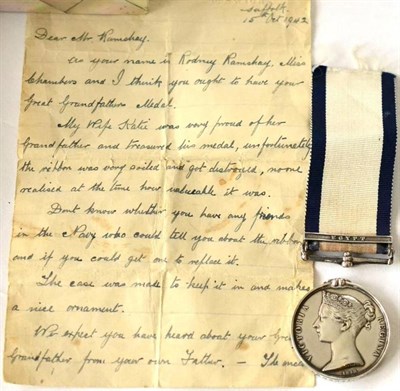 Suffolk.
15th Oct 1942
Dear Mr. Ramshay.
As your name is Rodney Ramshay, Miss
Chambers and I think you ought to have your
Great Grandfathers Medal.
My Wife Katie was very proud of her
Grandfather and treasured his medal, unfortunately
the ribbon was very soiled and got distroued, no one
realised at the time how valueable it was.
Dont know whether you have any friends
in the Navy who could tell you about the ribbon
and if you could get one to replace it.
The case was made to keep it in and makes
a nice ornament.
We expect you have heard about your Great
Grandfather from your own Father. - The
EGYPT
VICTORIA REGINA